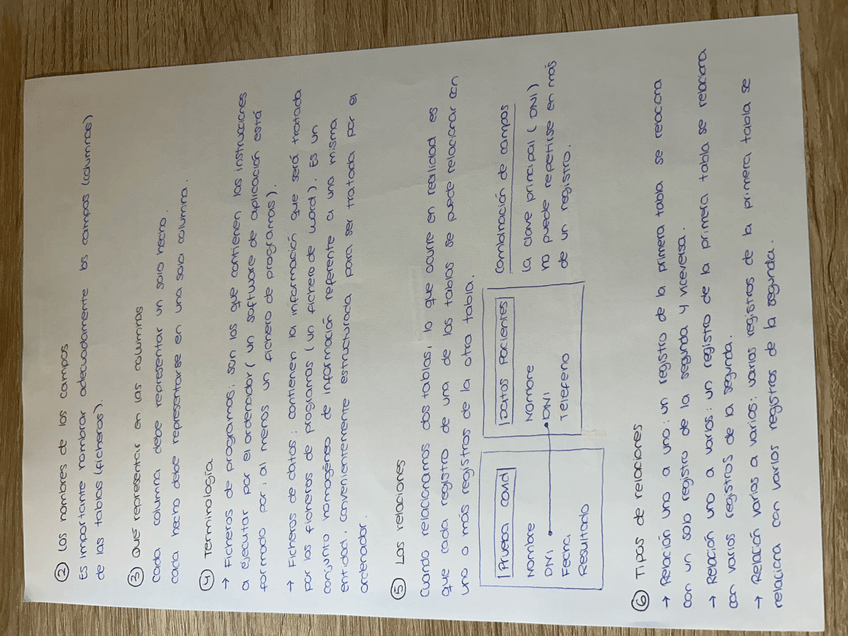 ② Los nombres de los campos
Es importante nombrar adecuadamente los campos (columnas)
de las tablas (ficheros).
③ Qué representar en las columnas
cada columna debe representar un solo hecho.
cada hecho debe representarse en una sola columna.
④ Terminología
→ Ficheros de programas: son los que contienen las instrucciones
a ejecutar por el ordenador (un software de aplicación está
formado por, al menos un fichero de programas).
→ Ficheros de datos: contienen la información que será tratada
por los ficheros de programas (un fichero de word). Es un
conjunto homogéneo de información referente a una misma
entidad, convenientemente estructurada para ser tratada por el
ordenador.
⑤ Las relaciones
Cuando relacionamos dos tablas, lo que ocurre en realidad es
que cada registro de una de las tablas se puede relacionar con
uno o más registros de la otra tabla.
Prueba covid
Nombre
DNI
Fecha
Resultado
Datos Pacientes
Nombre
DNI
Telefeno
Combinación de campos
la clave principal (DNI)
no puede repetirse en más
de un registro.
⑥ Tipos de relaciones
→ Relación uno a uno: un registro de la primera tabla se reacciona
con un solo registro de la segunda y viceversa.
→ Relación uno a varios: un registro de la primera tabla se relaciona
con varios registros de la segunda.
→ Relación varios a varios: varios registros de la primera tabla se
relaciona con varios registros de la segunda.